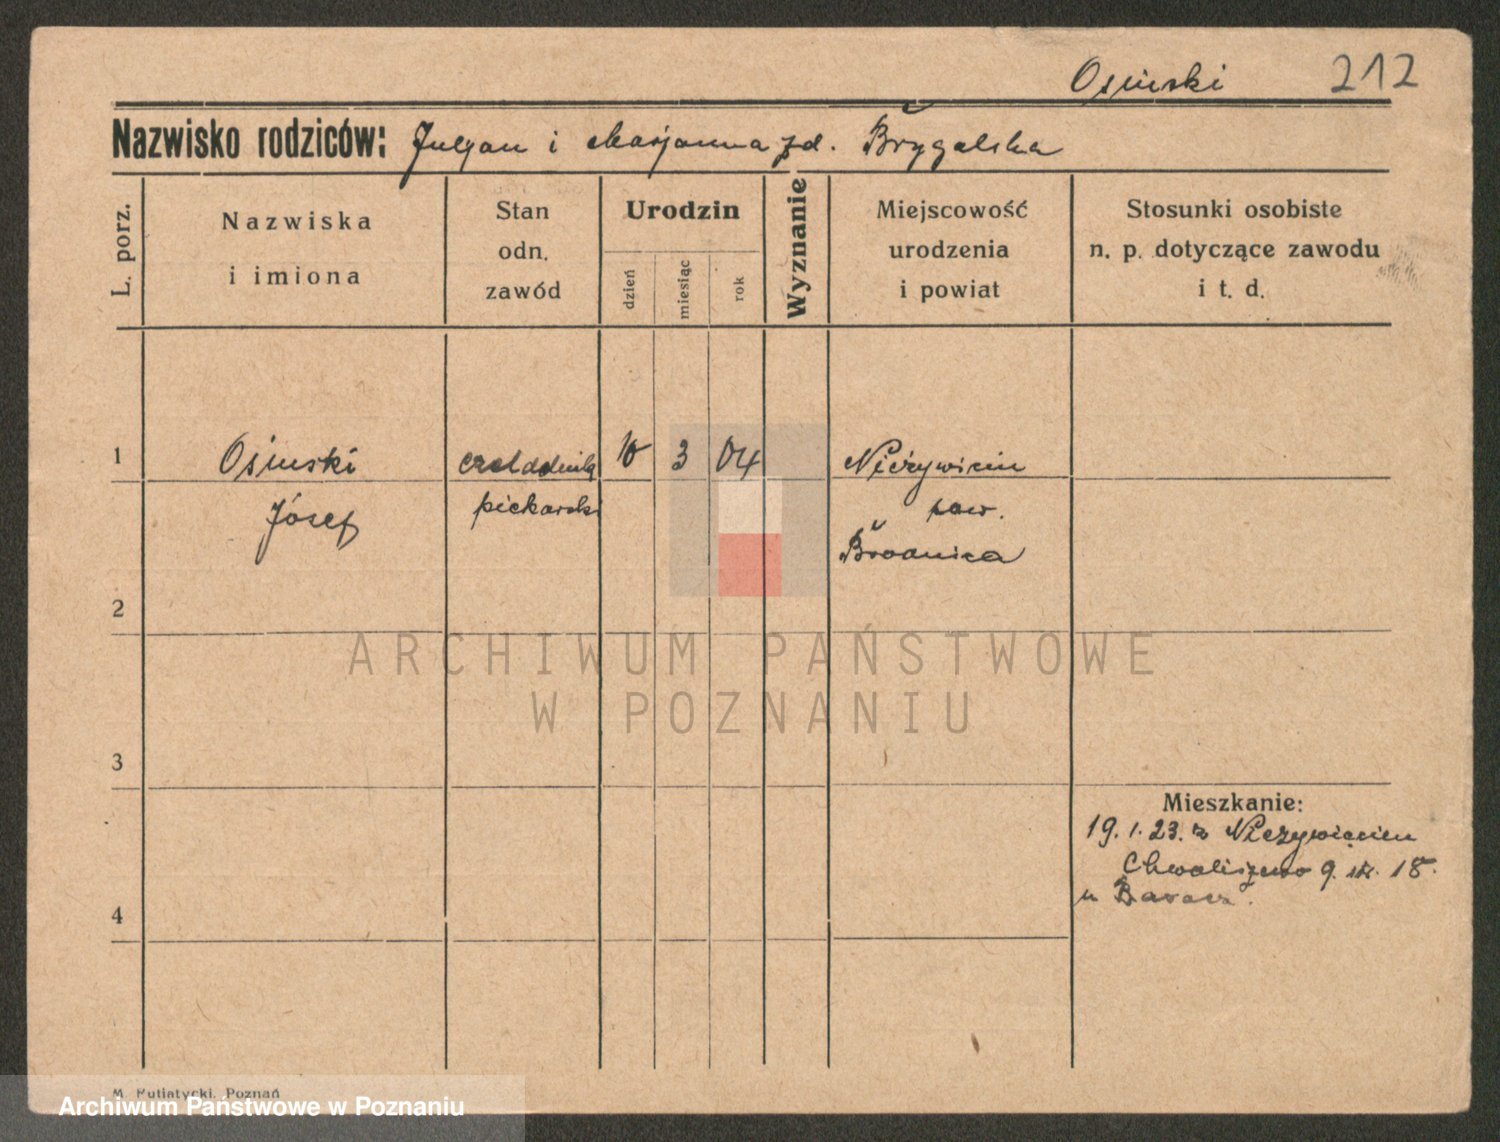 Osinski 212
Nazwisko rodziców: Juljan i Marjanna zd. Brygalska
L. porz.
Nazwiska
i imiona
Stan
odn.
zawód
Urodzin
dzień
miesiąc
rok
Wyznanie
Miejscowość
urodzenia
i powiat
Stosunki osobiste
n. p. dotyczące zawodu
i t. d.
1 Osinski czeladnik 10 3 04 Nieżywiciu
Józef piekarski pow.
Brodnica
2
3
4
Mieszkanie:
19. 1. 23. z Nieżywięciu
Chwaliszewo 9. m. 18.
u
ARCHIWUM PAŃSTWOWE
W POZNANIU
M. Putiatycki, Poznań
Archiwum Państwowe w Poznaniu